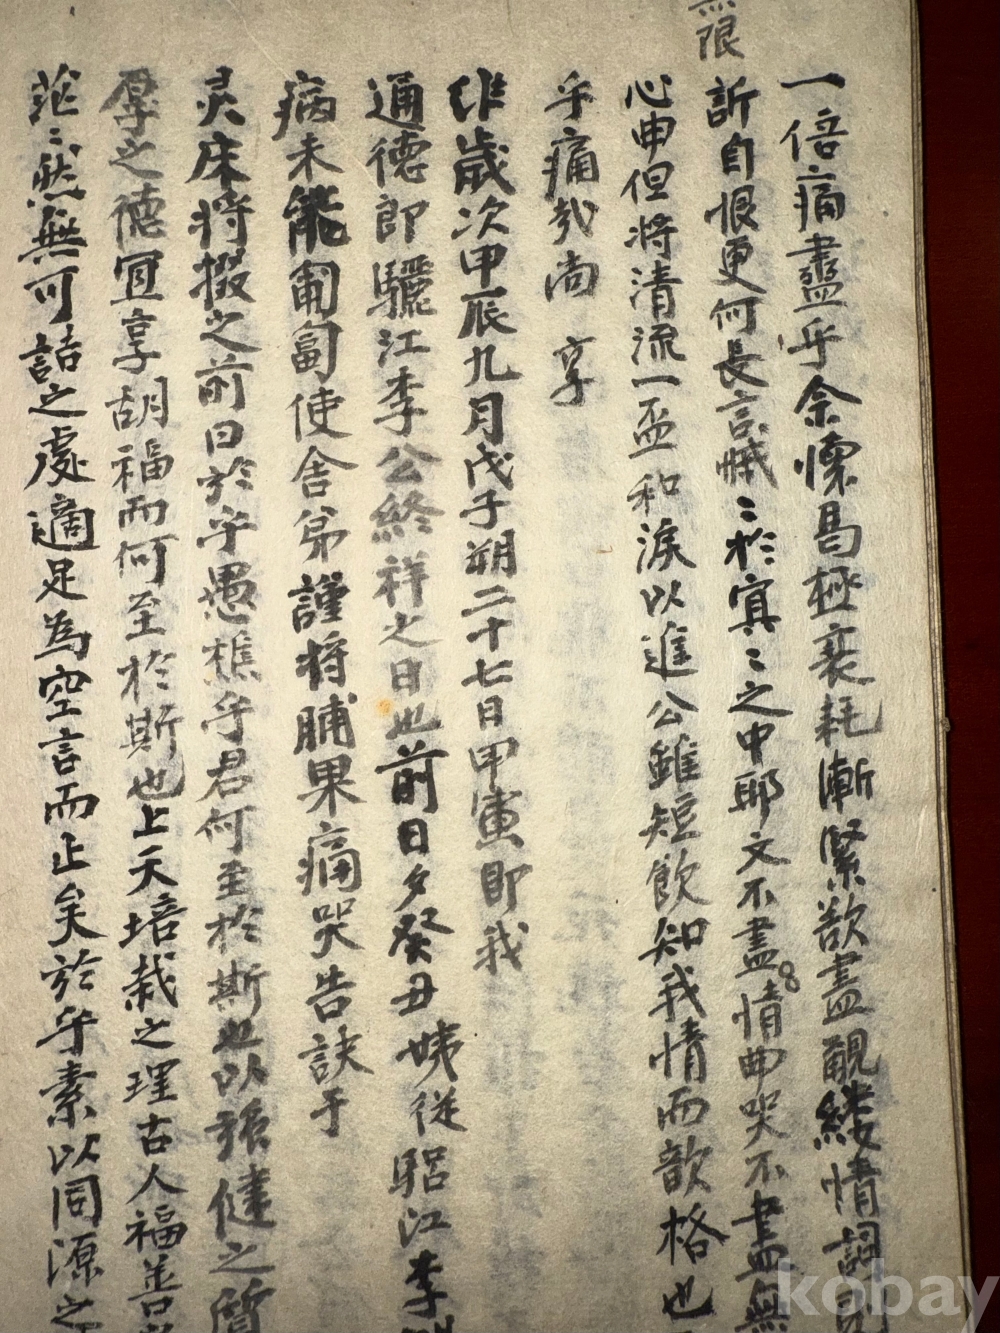 無限
一倍痛盡乎余懷曷極衰耗漸緊欲盡覼縷情詞
訴自恨更何長言懴〻於寘〻之中耶文不盡情曲哭不盡無
心申但將清流一盃和淚以進公雖短飮知我情而歆格也
乎痛哉尙 享
維歲次甲辰九月戊子朔二十七日甲寅卽我
通德郎驪江李公終祥之日也前日夕癸丑姨從 江李
病未能匍匐使舍弟謹將脯果痛哭告訣于
灵床將掇之前曰於乎愚樵乎君何至於斯也以強健之質
厚之德宜享胡福而何至於斯也上天培栽之理古人福善
茫〻然無可詰之處適足為空言而止矣於乎素以同源之
kobay